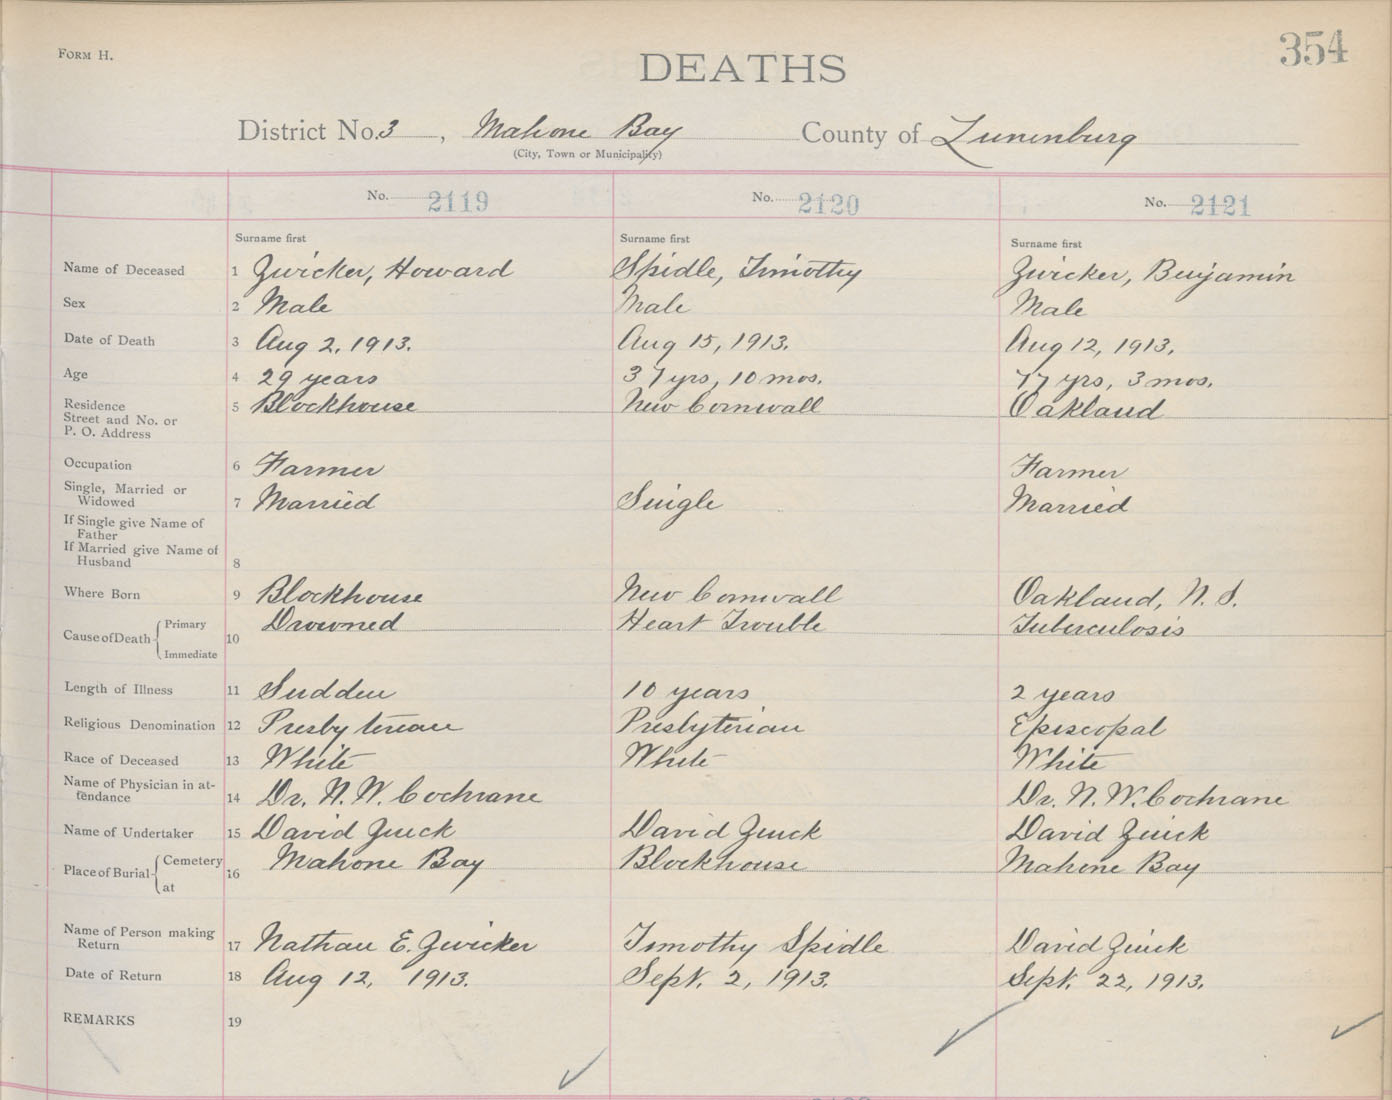 FORM H.
354
DEATHS
District No. 3, Mahone Bay County of Lunenburg
(City, Town or Municipality)
No. 2119 No. 2120 No. 2121
Surname first Surname first Surname first
Name of Deceased 1 Zwicker, Howard Spidle, Timothy Zwicker, Benjamin
Sex 2 Male Male Male
Date of Death 3 Aug 2, 1913. Aug 15, 1913. Aug 12, 1913.
Age 4 29 years 37 yrs, 10 mos. 77 yrs, 3 mos.
Residence
Street and No. or 5 Blockhouse New Cornwall Oakland
P. O. Address
Occupation 6 Farmer Farmer
Single, Married or
Widowed 7 Married Single Married
If Single give Name of
Father
If Married give Name of
Husband 8
Where Born 9 Blockhouse New Cornwall Oakland, N. S.
Cause of Death Primary 10 Drowned Heart Trouble Tuberculosis
Immediate
Length of Illness 11 Sudden 10 years 2 years
Religious Denomination 12 Presbyterian Presbyterian Episcopal
Race of Deceased 13 White White White
Name of Physician in at-
tendance 14 Dr. N. W. Cochrane Dr. N. W. Cochrane
Name of Undertaker 15 David Zinck David Zinck David Zinck
Place of Burial Cemetery 16 Mahone Bay Blockhouse Mahone Bay
at
Name of Person making
Return 17 Nathan E. Zwicker Timothy Spidle David Zinck
Date of Return 18 Aug 12, 1913. Sept. 2, 1913. Sept. 22, 1913.
REMARKS 19